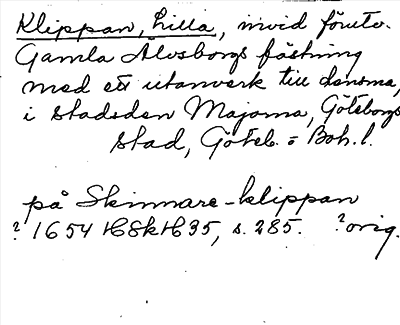 Klippan, Lilla, invid förutv.
Gamla Älvsborgs fästning
med ett utanverk till densma,
i stadsden Majorna, Göteborgs
stad, Göteb. o Boh. l.
på Skinnare-klippan
? 1654 HSkH35, s. 285. ? orig.